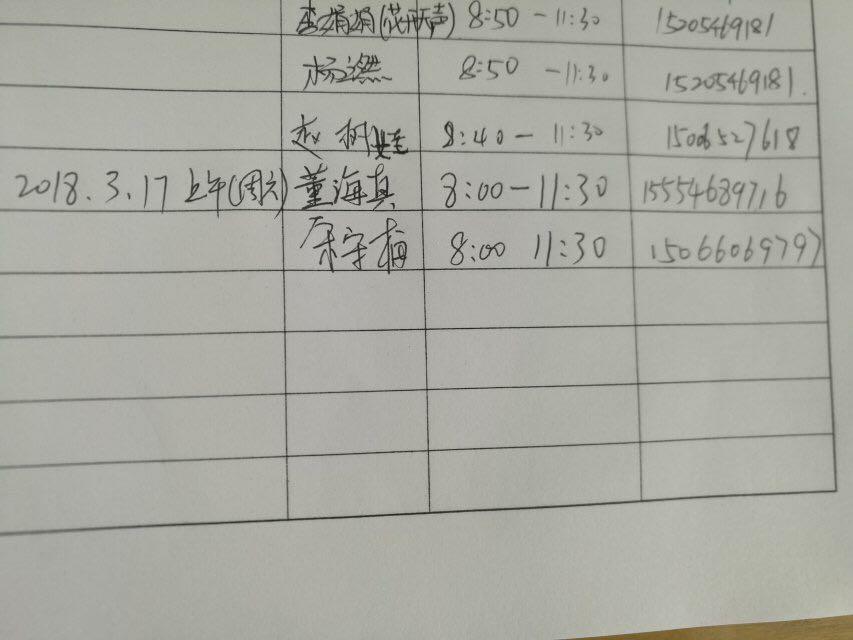 李娟娟(花开天声) 8:50 - 11:30 15205469181
杨 8:50 - 11:30 15205469181.
赵树 8:40 - 11:30 15065527618
2018.3.17 上午(周六) 董海真 8:00 - 11:30 15554689716
宋守梅 8:00 11:30 15066069797